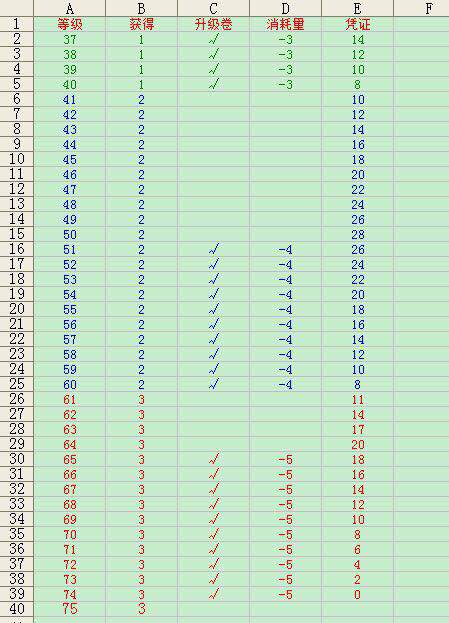 A B C D E F
1 等级 获得 升级卷 消耗量 凭证
2 37 1 √ -3 14
3 38 1 √ -3 12
4 39 1 √ -3 10
5 40 1 √ -3 8
6 41 2 10
7 42 2 12
8 43 2 14
9 44 2 16
10 45 2 18
11 46 2 20
12 47 2 22
13 48 2 24
14 49 2 26
15 50 2 28
16 51 2 √ -4 26
17 52 2 √ -4 24
18 53 2 √ -4 22
19 54 2 √ -4 20
20 55 2 √ -4 18
21 56 2 √ -4 16
22 57 2 √ -4 14
23 58 2 √ -4 12
24 59 2 √ -4 10
25 60 2 √ -4 8
26 61 3 11
27 62 3 14
28 63 3 17
29 64 3 20
30 65 3 √ -5 18
31 66 3 √ -5 16
32 67 3 √ -5 14
33 68 3 √ -5 12
34 69 3 √ -5 10
35 70 3 √ -5 8
36 71 3 √ -5 6
37 72 3 √ -5 4
38 73 3 √ -5 2
39 74 3 √ -5 0
40 75 3